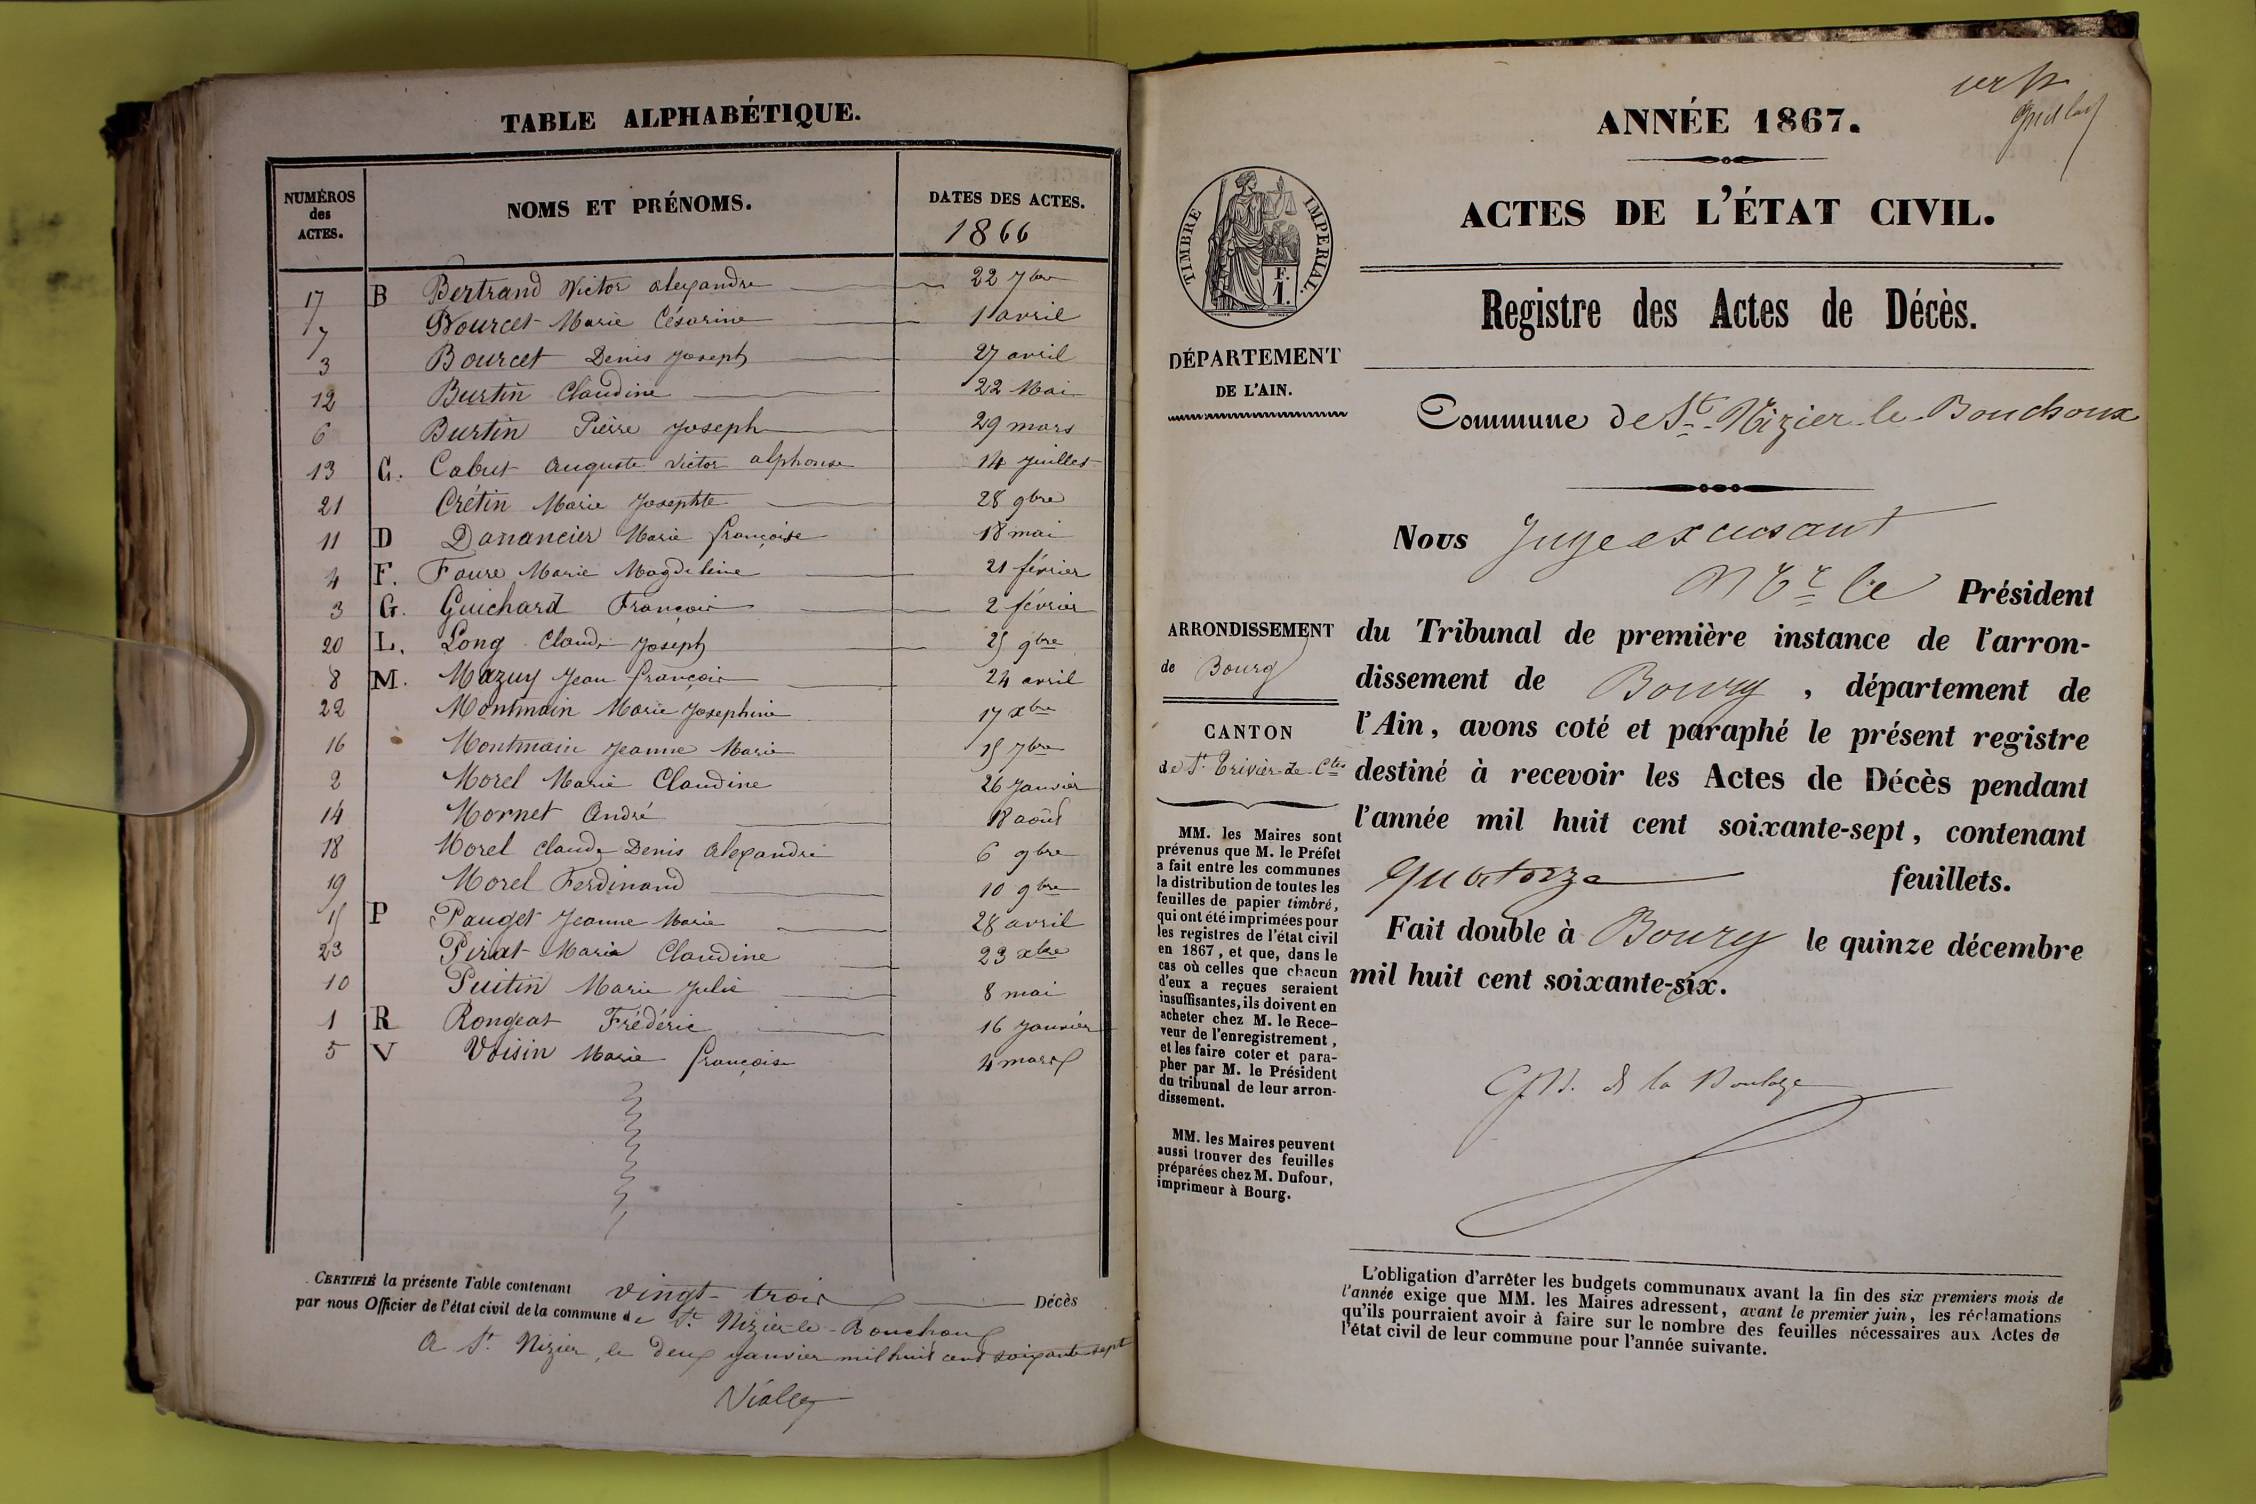 TABLE ALPHABÉTIQUE.
NUMÉROS des ACTES. NOMS ET PRÉNOMS. DATES DES ACTES.
1866
17 B Bertrand Victor alexandre 22 7bre
7 Bourcet Marie Césarine 1 avril
3 Bourcet Denis Joseph 27 avril
12 Burtin Claudine 22 Mai
6 Burtin Pierre Joseph 29 mars
13 C. Cabut Auguste Victor alphonse 14 Juillet
21 Crétin Marie Josephte 28 9bre
11 D Danancier Marie françoise 18 mai
4 F. Faure Marie Magdeleine 21 février
3 G. Guichard François 2 février
20 L. Long Claude Joseph 25 9bre
8 M. Mazuy Jean françois 24 avril
22 Montmain Marie Josephine 17 xbre
16 Montmain Jeanne Marie 15 7bre
2 Morel Marie Claudine 26 Janvier
14 Mornet André 18 août
18 Morel Claude Denis alexandre 6 9bre
19 Morel Ferdinand 10 9bre
15 P Pauget Jeanne Marie 28 avril
23 Pirat Marie Claudine 23 xbre
10 Puitin Marie Julie 8 mai
1 R Rongeat Frédéric 16 Janvier
5 V Voisin Marie françoise 4 mars
CERTIFIÉ la présente Table contenant vingt-trois Décès
par nous Officier de l'état civil de la commune de St. Nizier-le-Bouchoux
A St. Nizier, le deux janvier mil huit cent soixante sept
ANNÉE 1867.
ACTES DE L'ÉTAT CIVIL.
TIMBRE IMPERIAL.
F.
1.
Registre des Actes de Décès.
DÉPARTEMENT
DE L'AIN.
Commune de St. Nizier-le-Bouchoux
Nous Juge excusant
Mr le Président
ARRONDISSEMENT
de Bourg
du Tribunal de première instance de l'arron-
dissement de Bourg, département de
l'Ain, avons coté et paraphé le présent registre
destiné à recevoir les Actes de Décès pendant
l'année mil huit cent soixante-sept, contenant
quatorze feuillets.
Fait double à Bourg le quinze décembre
mil huit cent soixante-six.
CANTON
de St. Trivier-de-Ctes
MM. les Maires sont
prévenus que M. le Préfet
a fait entre les communes
la distribution de toutes les
feuilles de papier timbré,
qui ont été imprimées pour
les registres de l'état civil
en 1867, et que, dans le
cas où celles que chacun
d'eux a reçues seraient
insuffisantes, ils doivent en
acheter chez M. le Rece-
veur de l'enregistrement,
et les faire coter et para-
pher par M. le Président
du tribunal de leur arron-
dissement.
MM. les Maires peuvent
aussi trouver des feuilles
préparées chez M. Dufour,
imprimeur à Bourg.
de la Boulaye
L'obligation d'arrêter les budgets communaux avant la fin des six premiers mois de
l'année exige que MM. les Maires adressent, avant le premier juin, les réclamations
qu'ils pourraient avoir à faire sur le nombre des feuilles nécessaires aux Actes de
l'état civil de leur commune pour l'année suivante.